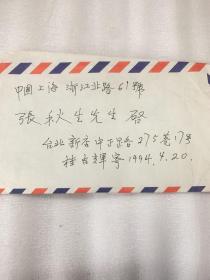 中國上海浙江北路61號
張秋生先生啓
台北新店中正路275巷17号
桂台輝寄1994.4.20.